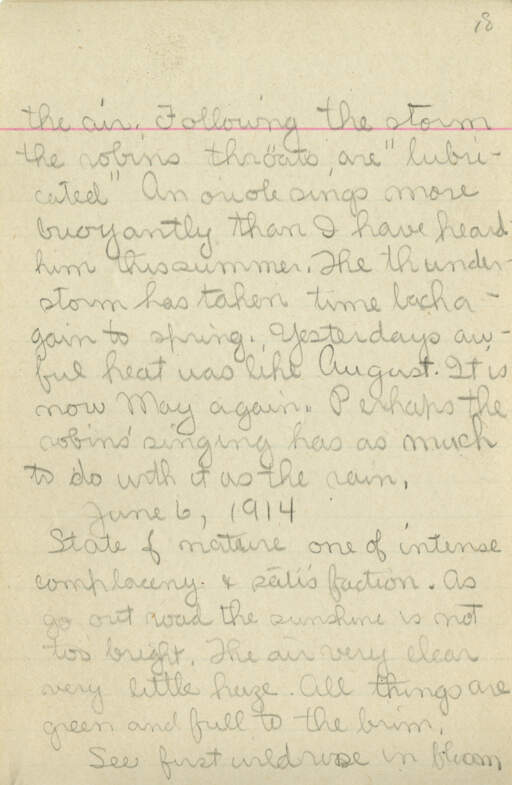 18
the air. Following the storm
the robins throats are "lubri-
cated" An oriole sings more
buoyantly than I have heard
him this summer. The thunder-
storm has taken time back a-
gain to spring. Yesterdays aw-
ful heat was like August. It is
now May again. Perhaps the
robins' singing has as much
to do with it as the rain.
June 6, 1914
State of nature one of intense
complaceny. & satisfaction. As
go out road the sunshine is not
too bright. The air very clear
very little haze. All things are
green and full to the brim.
See first wild rose in bloom